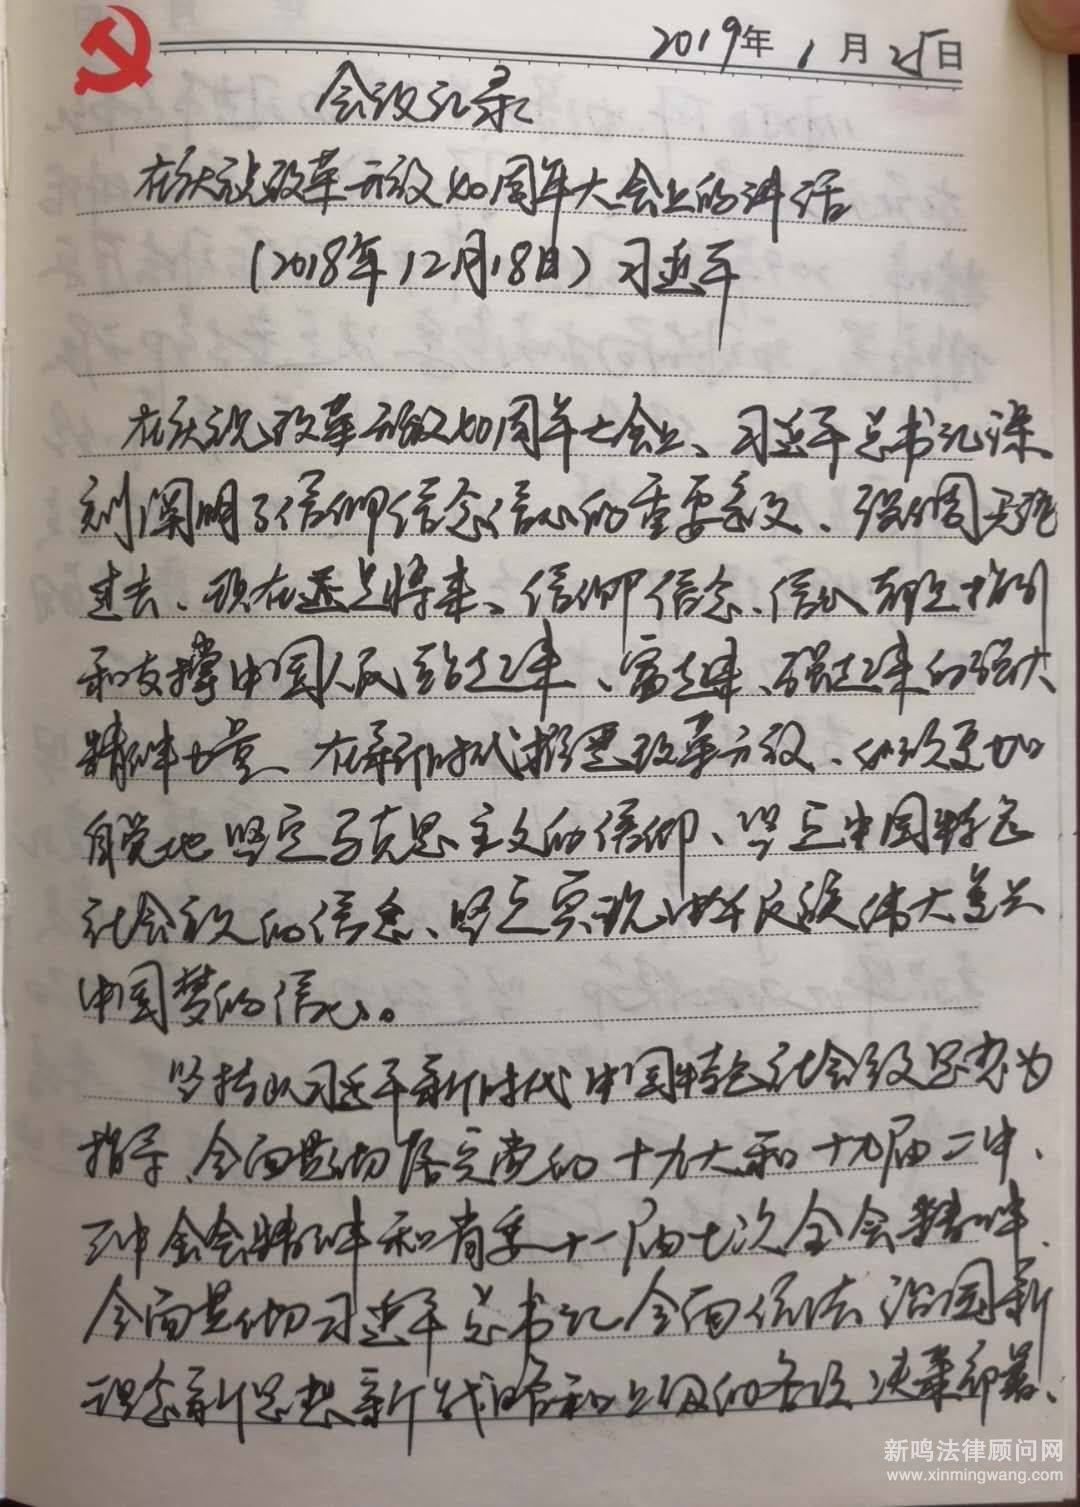 2019年1月25日
会议记录
在庆祝改革开放40周年大会上的讲话
(2018年12月18日)习近平
在庆祝改革开放40周年大会上、习近平总书记深
刻阐明了信仰信念信心的重要意义、强调无论
过去、现在还是将来、信仰信念、信心都是指引
和支撑中国人民站起来、富起来、强起来的强大
精神力量、在新时代推进改革开放、必须更加
自觉地坚定马克思主义的信仰、坚定中国特色
社会主义的信念、坚定实现中华民族伟大复兴
中国梦的信心。
坚持以习近平新时代中国特色社会主义思想为
指导、全面贯彻落实党的十九大和十九届二中、
三中全会精神和省委十一届七次全会精神、
全面贯彻习近平总书记全面依法治国新
理念新思想新战略和上级的各项决策部署、
新鸣法律顾问网
www.xinmingwang.com